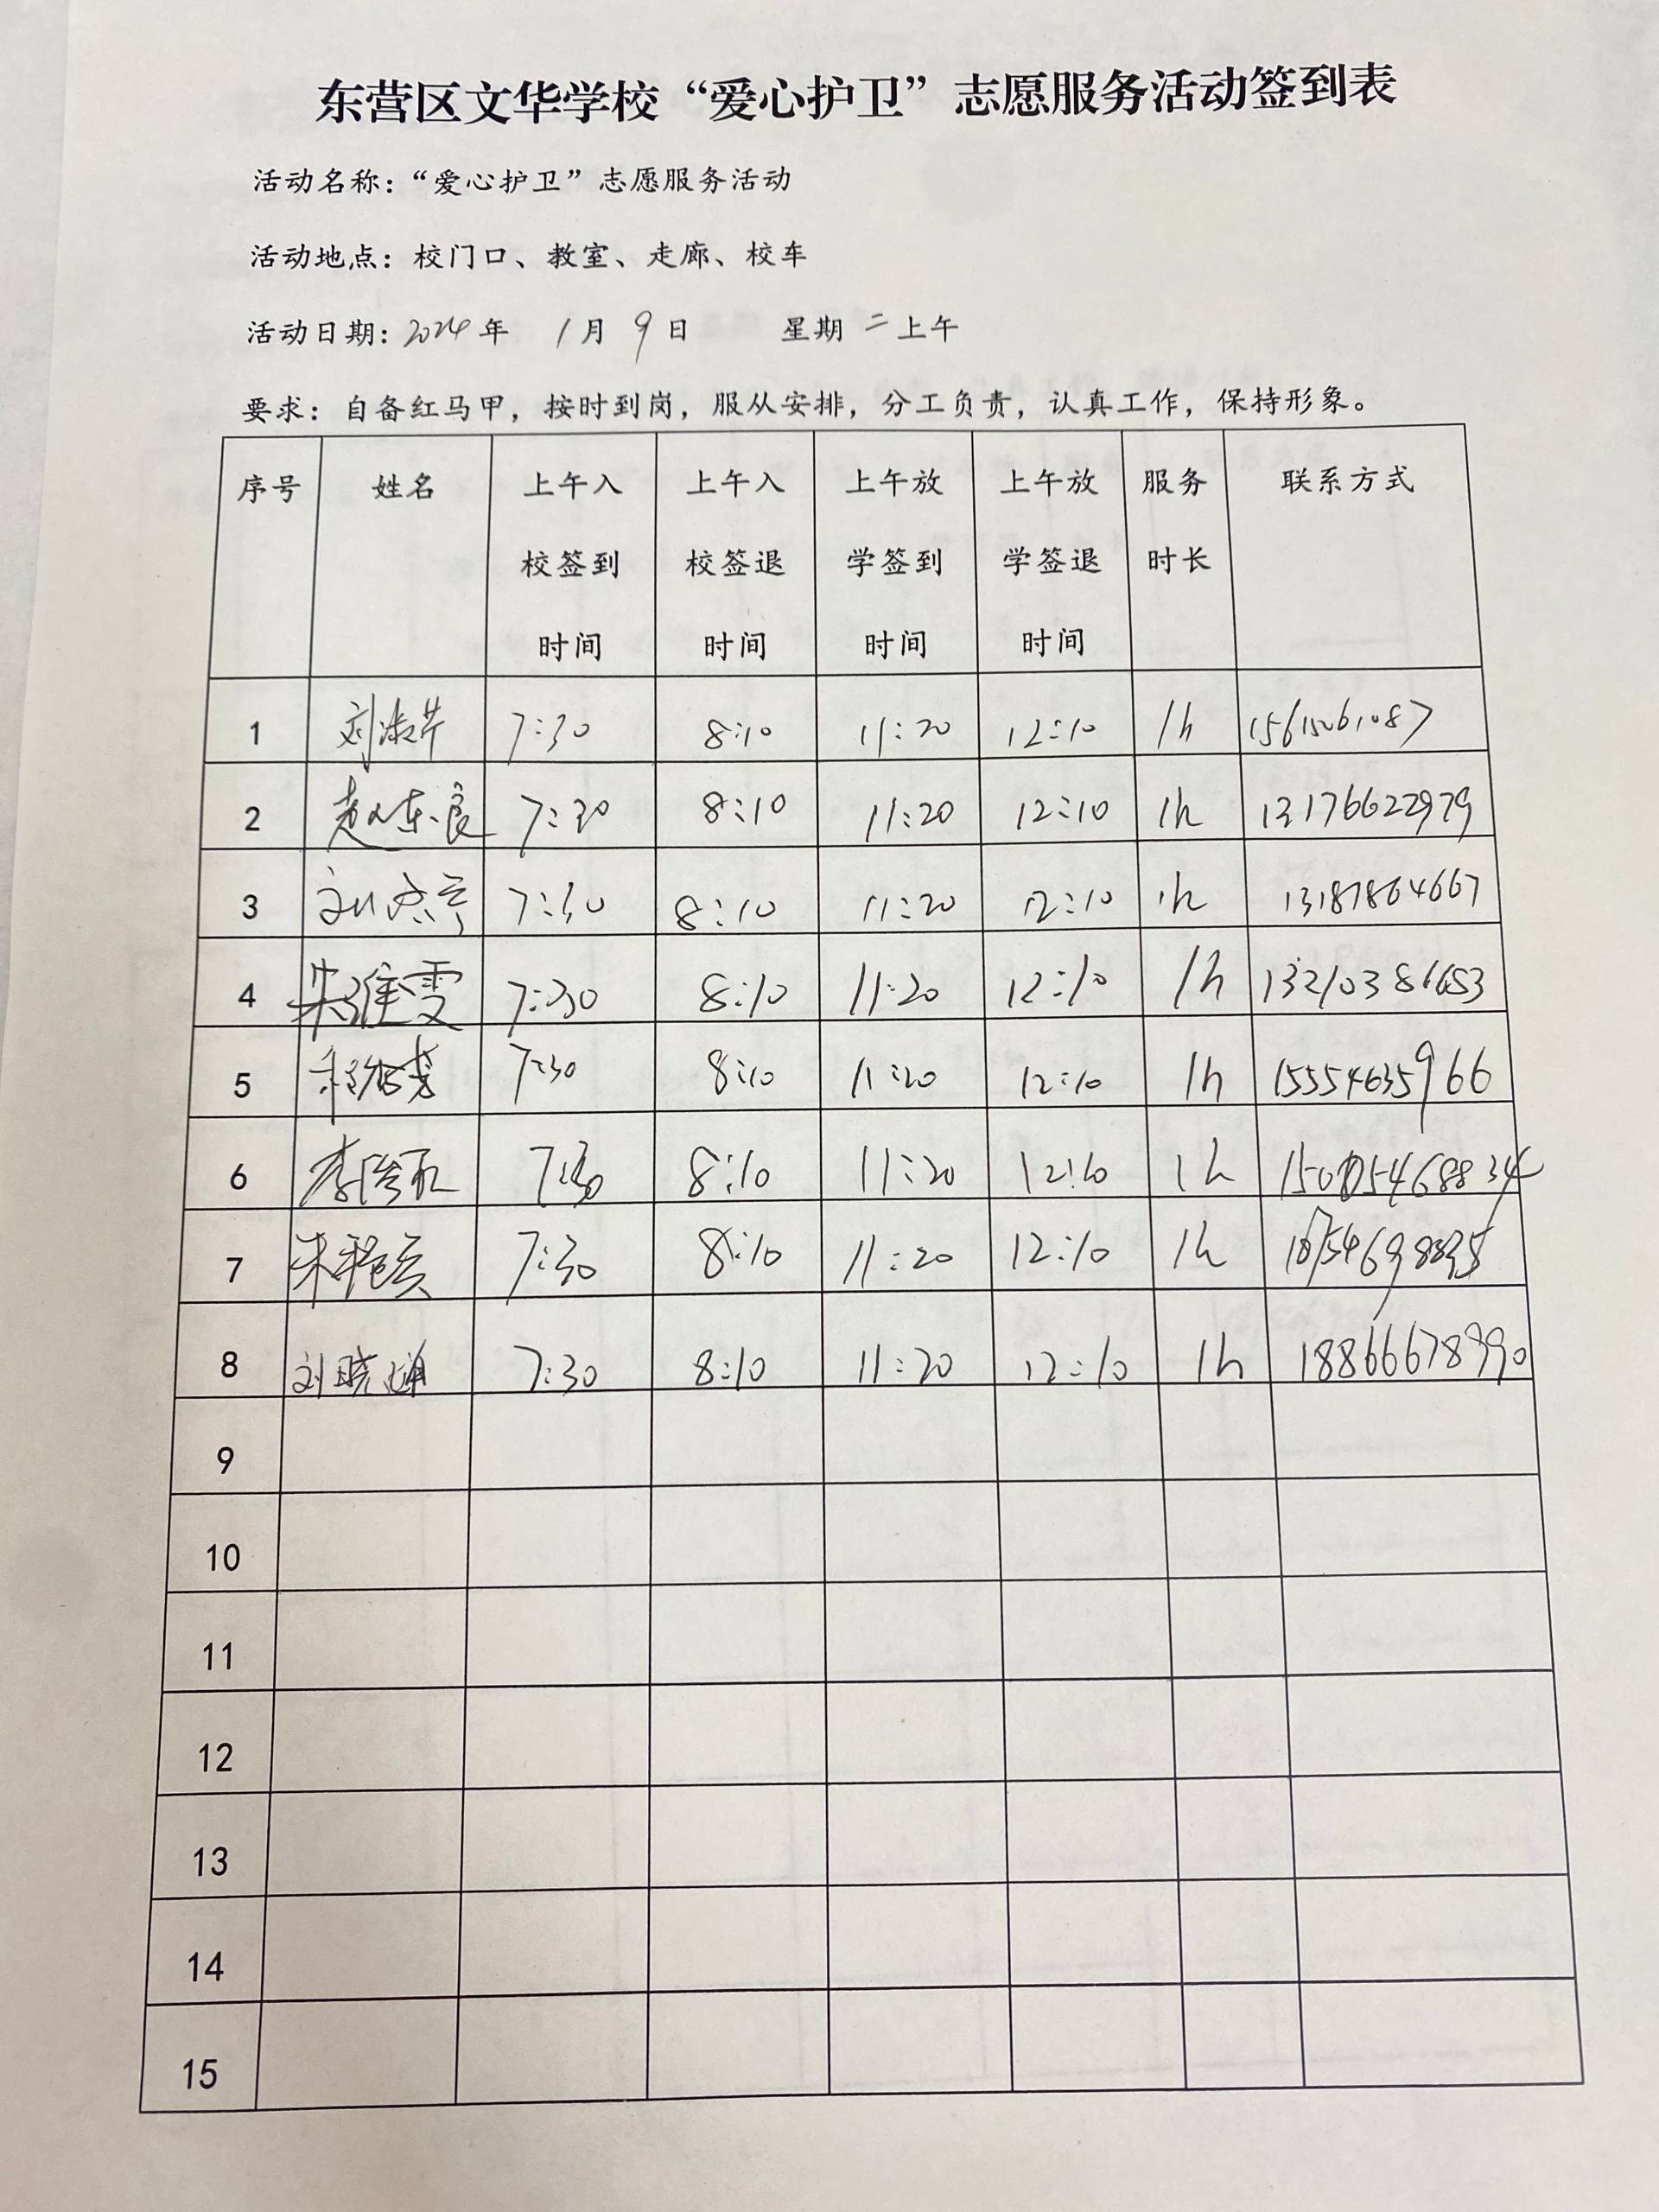 东营区文华学校“爱心护卫”志愿服务活动签到表
活动名称：“爱心护卫”志愿服务活动
活动地点：校门口、教室、走廊、校车
活动日期：2024年 1月 9日 星期二上午
要求：自备红马甲，按时到岗，服从安排，分工负责，认真工作，保持形象。
序号 姓名 上午入校签到时间 上午入校签退时间 上午放学签到时间 上午放学签退时间 服务时长 联系方式
1 刘淑芹 7:30 8:10 11:20 12:10 1h 15615061087
2 赵东良 7:30 8:10 11:20 12:10 1h 13176622979
3 7:30 8:10 11:20 12:10 1h 13187864667
4 7:30 8:10 11:20 12:10 1h 13210386653
5 7:30 8:10 11:20 12:10 1h 15554635966
6 7:30 8:10 11:20 12:10 1h
7 7:30 8:10 11:20 12:10 1h
8 刘晓 7:30 8:10 11:20 12:10 1h 18866678990
9
10
11
12
13
14
15